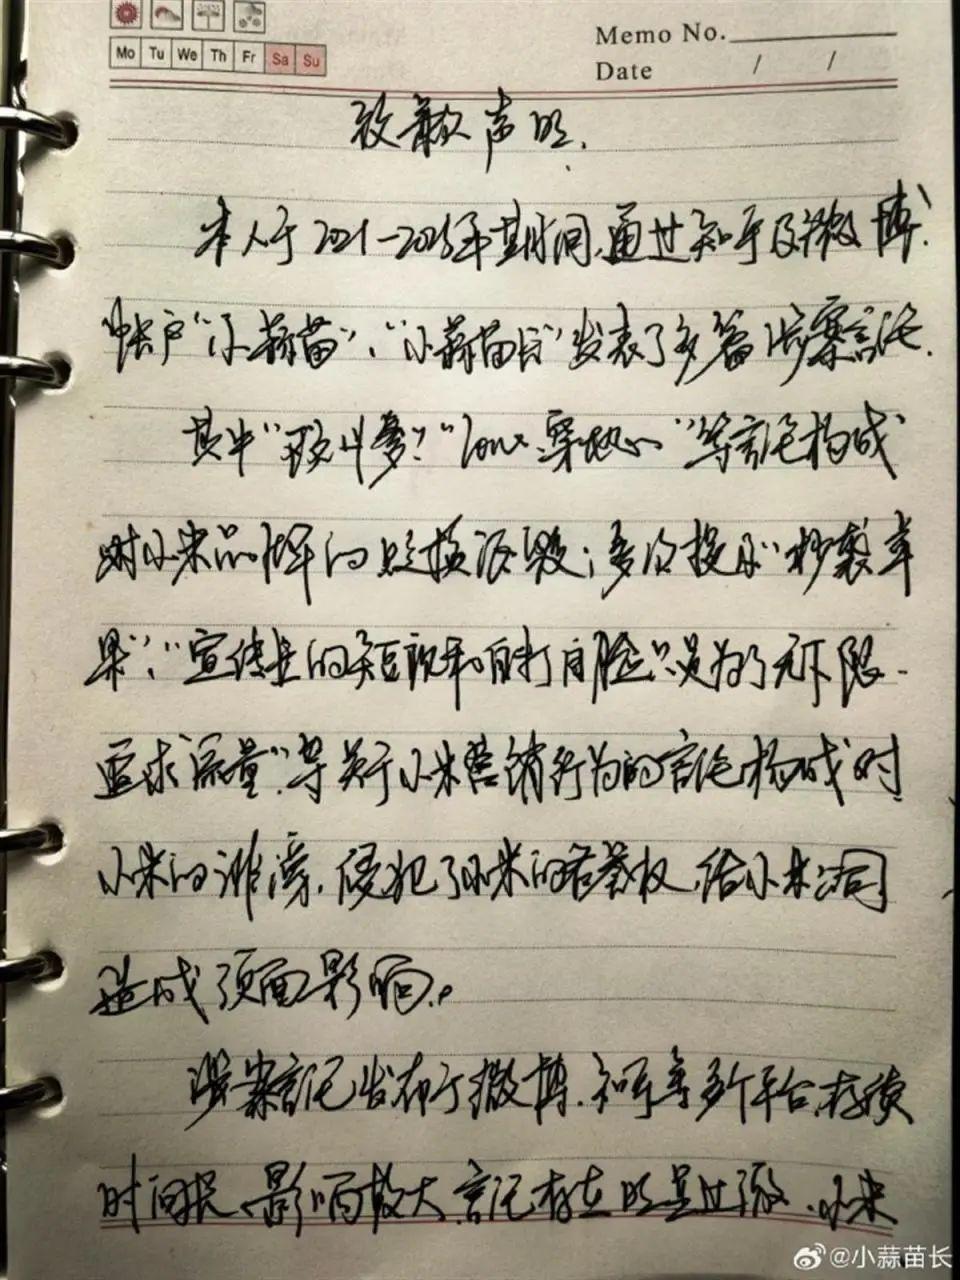 Mo Tu We Th Fr Sa Su
Memo No.
Date / /
致歉声明.
本人于2021—2025年期间,通过知乎及微博
帐户"小蒜苗"、"小蒜苗长"发表了多篇涉案言论.
其中" "等言论构成
对小米品牌的 ;多次提及"抄袭苹
果"、"宣传上的 和自打自脸"只是为了无下限
追求流量"等关于小米营销行为的言论构成对
小米的诽谤,侵犯了小米的名誉权,给小米公司
造成负面影响。
涉案言论发布于微博、知乎等多个平台,存续
时间长、影响较大,言论存在明显过激、小米
@小蒜苗长